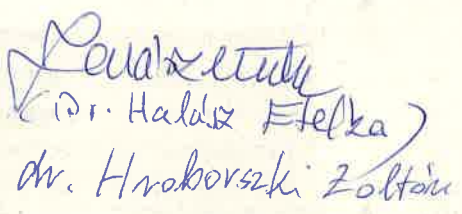 (Dr. Halász Etelka)
dr. Hraborszki Zoltán